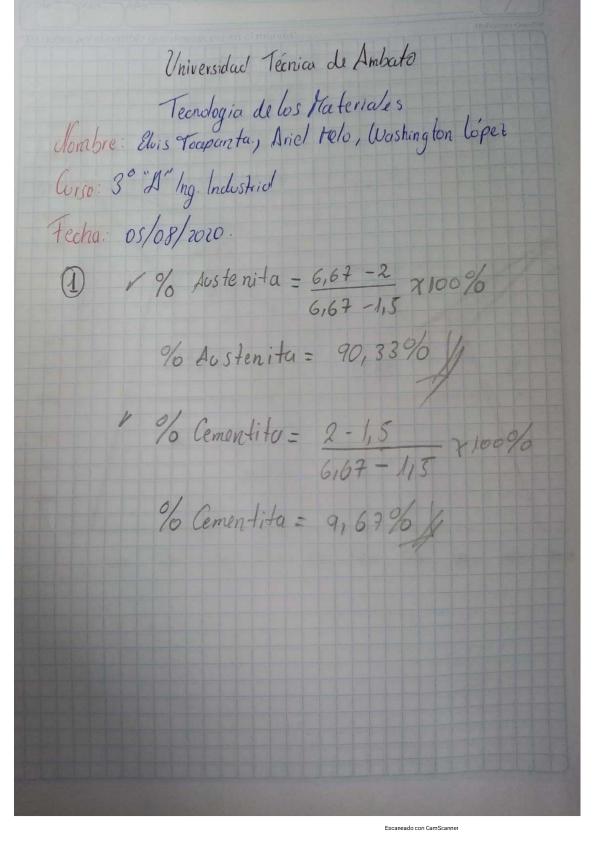 Universidad Técnica de Ambato
Tecnología de los Materiales
Nombre: Elvis Toapanta, Ariel Melo, Washington López
Curso: 3° "A" Ing. Industrial
Fecha: 05/08/2020.
① ✓ % Austenita = (6,67 - 2) / (6,67 - 1,5) x 100%
% Austenita = 90,33%
✓ % Cementita = (2 - 1,5) / (6,67 - 1,5) x 100%
% Cementita = 9,67%
Escaneado con CamScanner